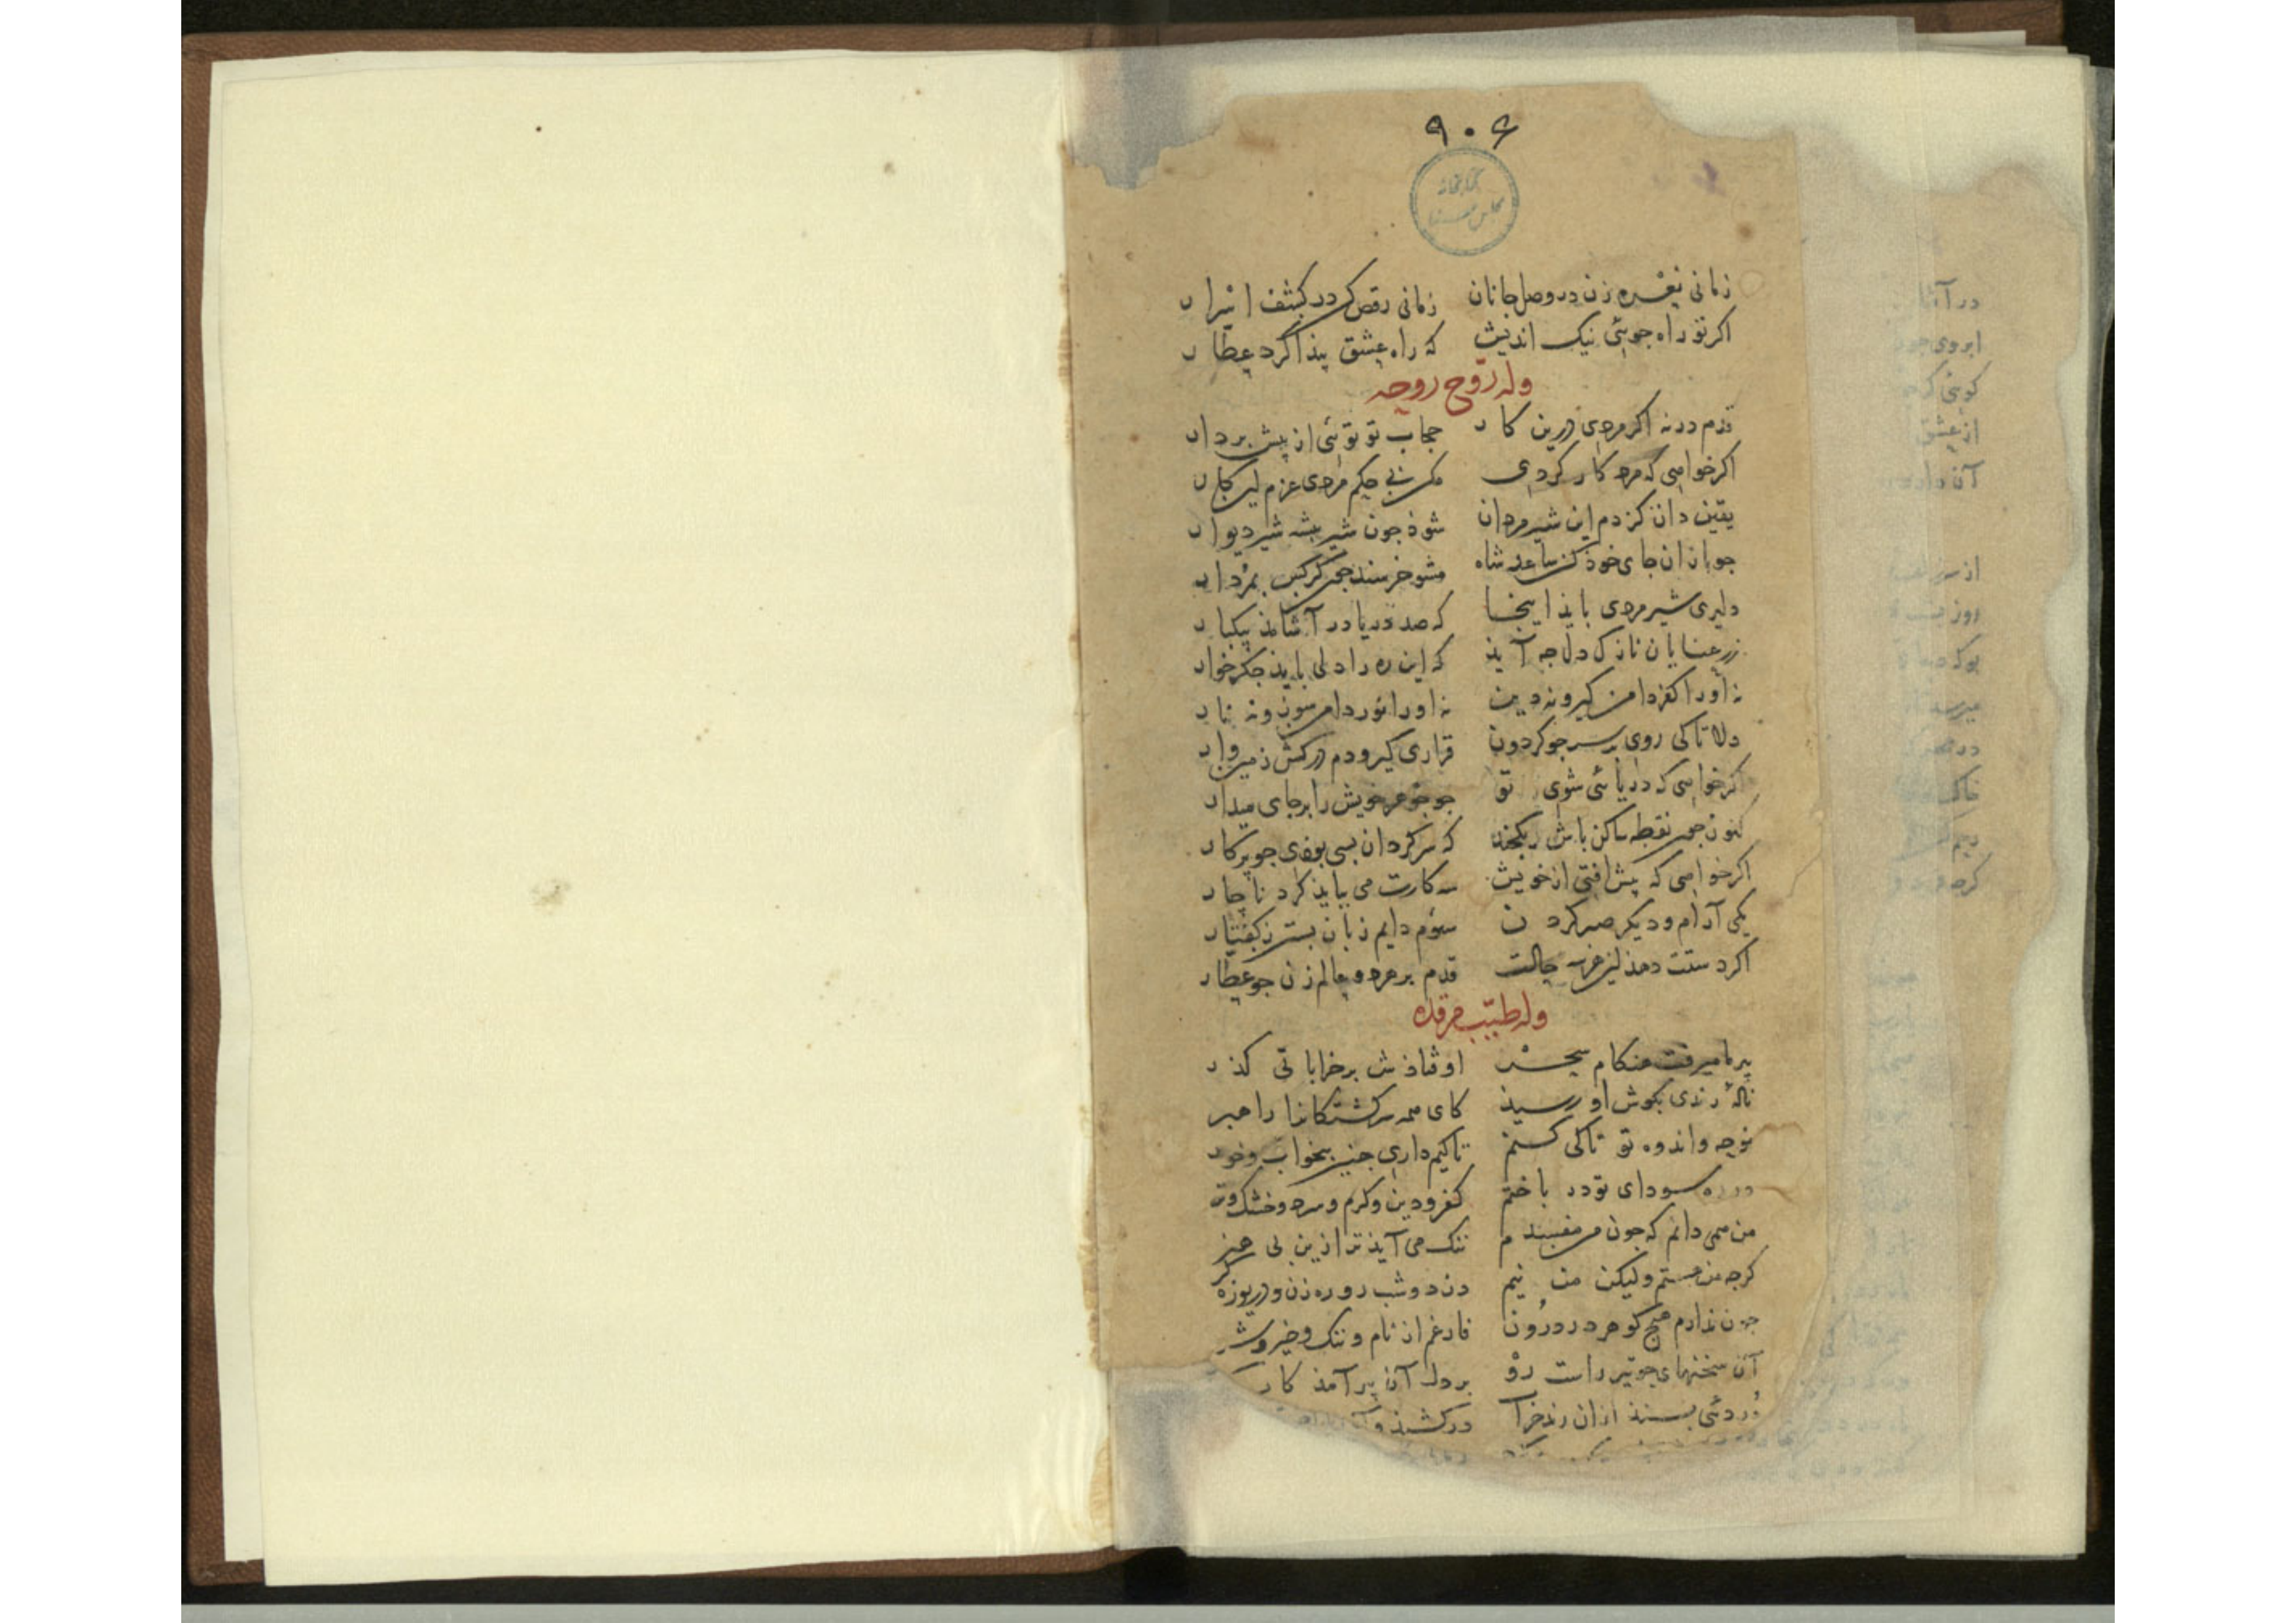 ۹۰۶
کتابخانه
مجلس سنا
زمانی نعره زن در وصل جانان زمانی رقص کن در کشف اسرار
اکر تو راه جوئی نیک اندیش که راه عشق پیذا کرد عطار
وله روّح روحه
قدم درنه اکر مردی درین کار حجاب تو توئی از پیش بردار
اکر خواهی که مرد کار کردی مکن بی حکم مردی عزم این کار
یقین دان کز دم این شیرمردان شوذ جون شیر بیشه شیر دیوار
جو بازان جای خوذ کن ساعد شاه مشو خرسند جون کرکس بمردار
دلیری شیرمردی بایذ اینجا که صد دریا در آشامذ بیکبار
ز رعنایان نازک دل جه آیذ که این ره را دلی بایذ جکرخوار
نه او را کفر دامن کیر و نه دین نه او را نور دامن سوز و نه نار
دلا تا کی روی بر سر جو کردون قراری کیر و دم درکش زمین وار
اکر خواهی که دریائی شوی تو جو جوهر خویش را بر جای میدار
کنون جون نقطه ساکن باش یکجند که سرکردان بسی بوذی جو پرکار
اکر خواهی که پیش افتی از خویش سه کارت می ببایذ کرد ناچار
یکی آرام و دیکر صبر کردن سوم دایم زبان بستن ز کفتار
اکر دستت دهذ این هر سه حالت قدم بر هر دو عالم زن جو عطار
وله طیّب مرقده
پیر ما میرفت هنکام سحر اوفتاذش بر خراباتی کذر
نالهٔ رندی بکوش او رسیذ کای همه سرکشتکانرا راهبر
نوحه و اندوه تو تا کی کنم تا کیم داری جنین بیخواب وخور
در ره سودای تو در باختم کفر و دین و کرم و سرد و خشک وتر
من همی دانم که جون من مفسدم ننک می آیذ ترا زین بی هنر
کرجه من هستم ولیکن من نیم دزد و شب رو ره زن و دریوزه کر
جون ندارم هیج کوهر در درون فارغم از نام و ننک و خیر وشر
آن سخنهای جو تیر راست رو بر دل آن پیر آمذ کار
دُردئی بستذ از ان رند خرا درکشیذ و